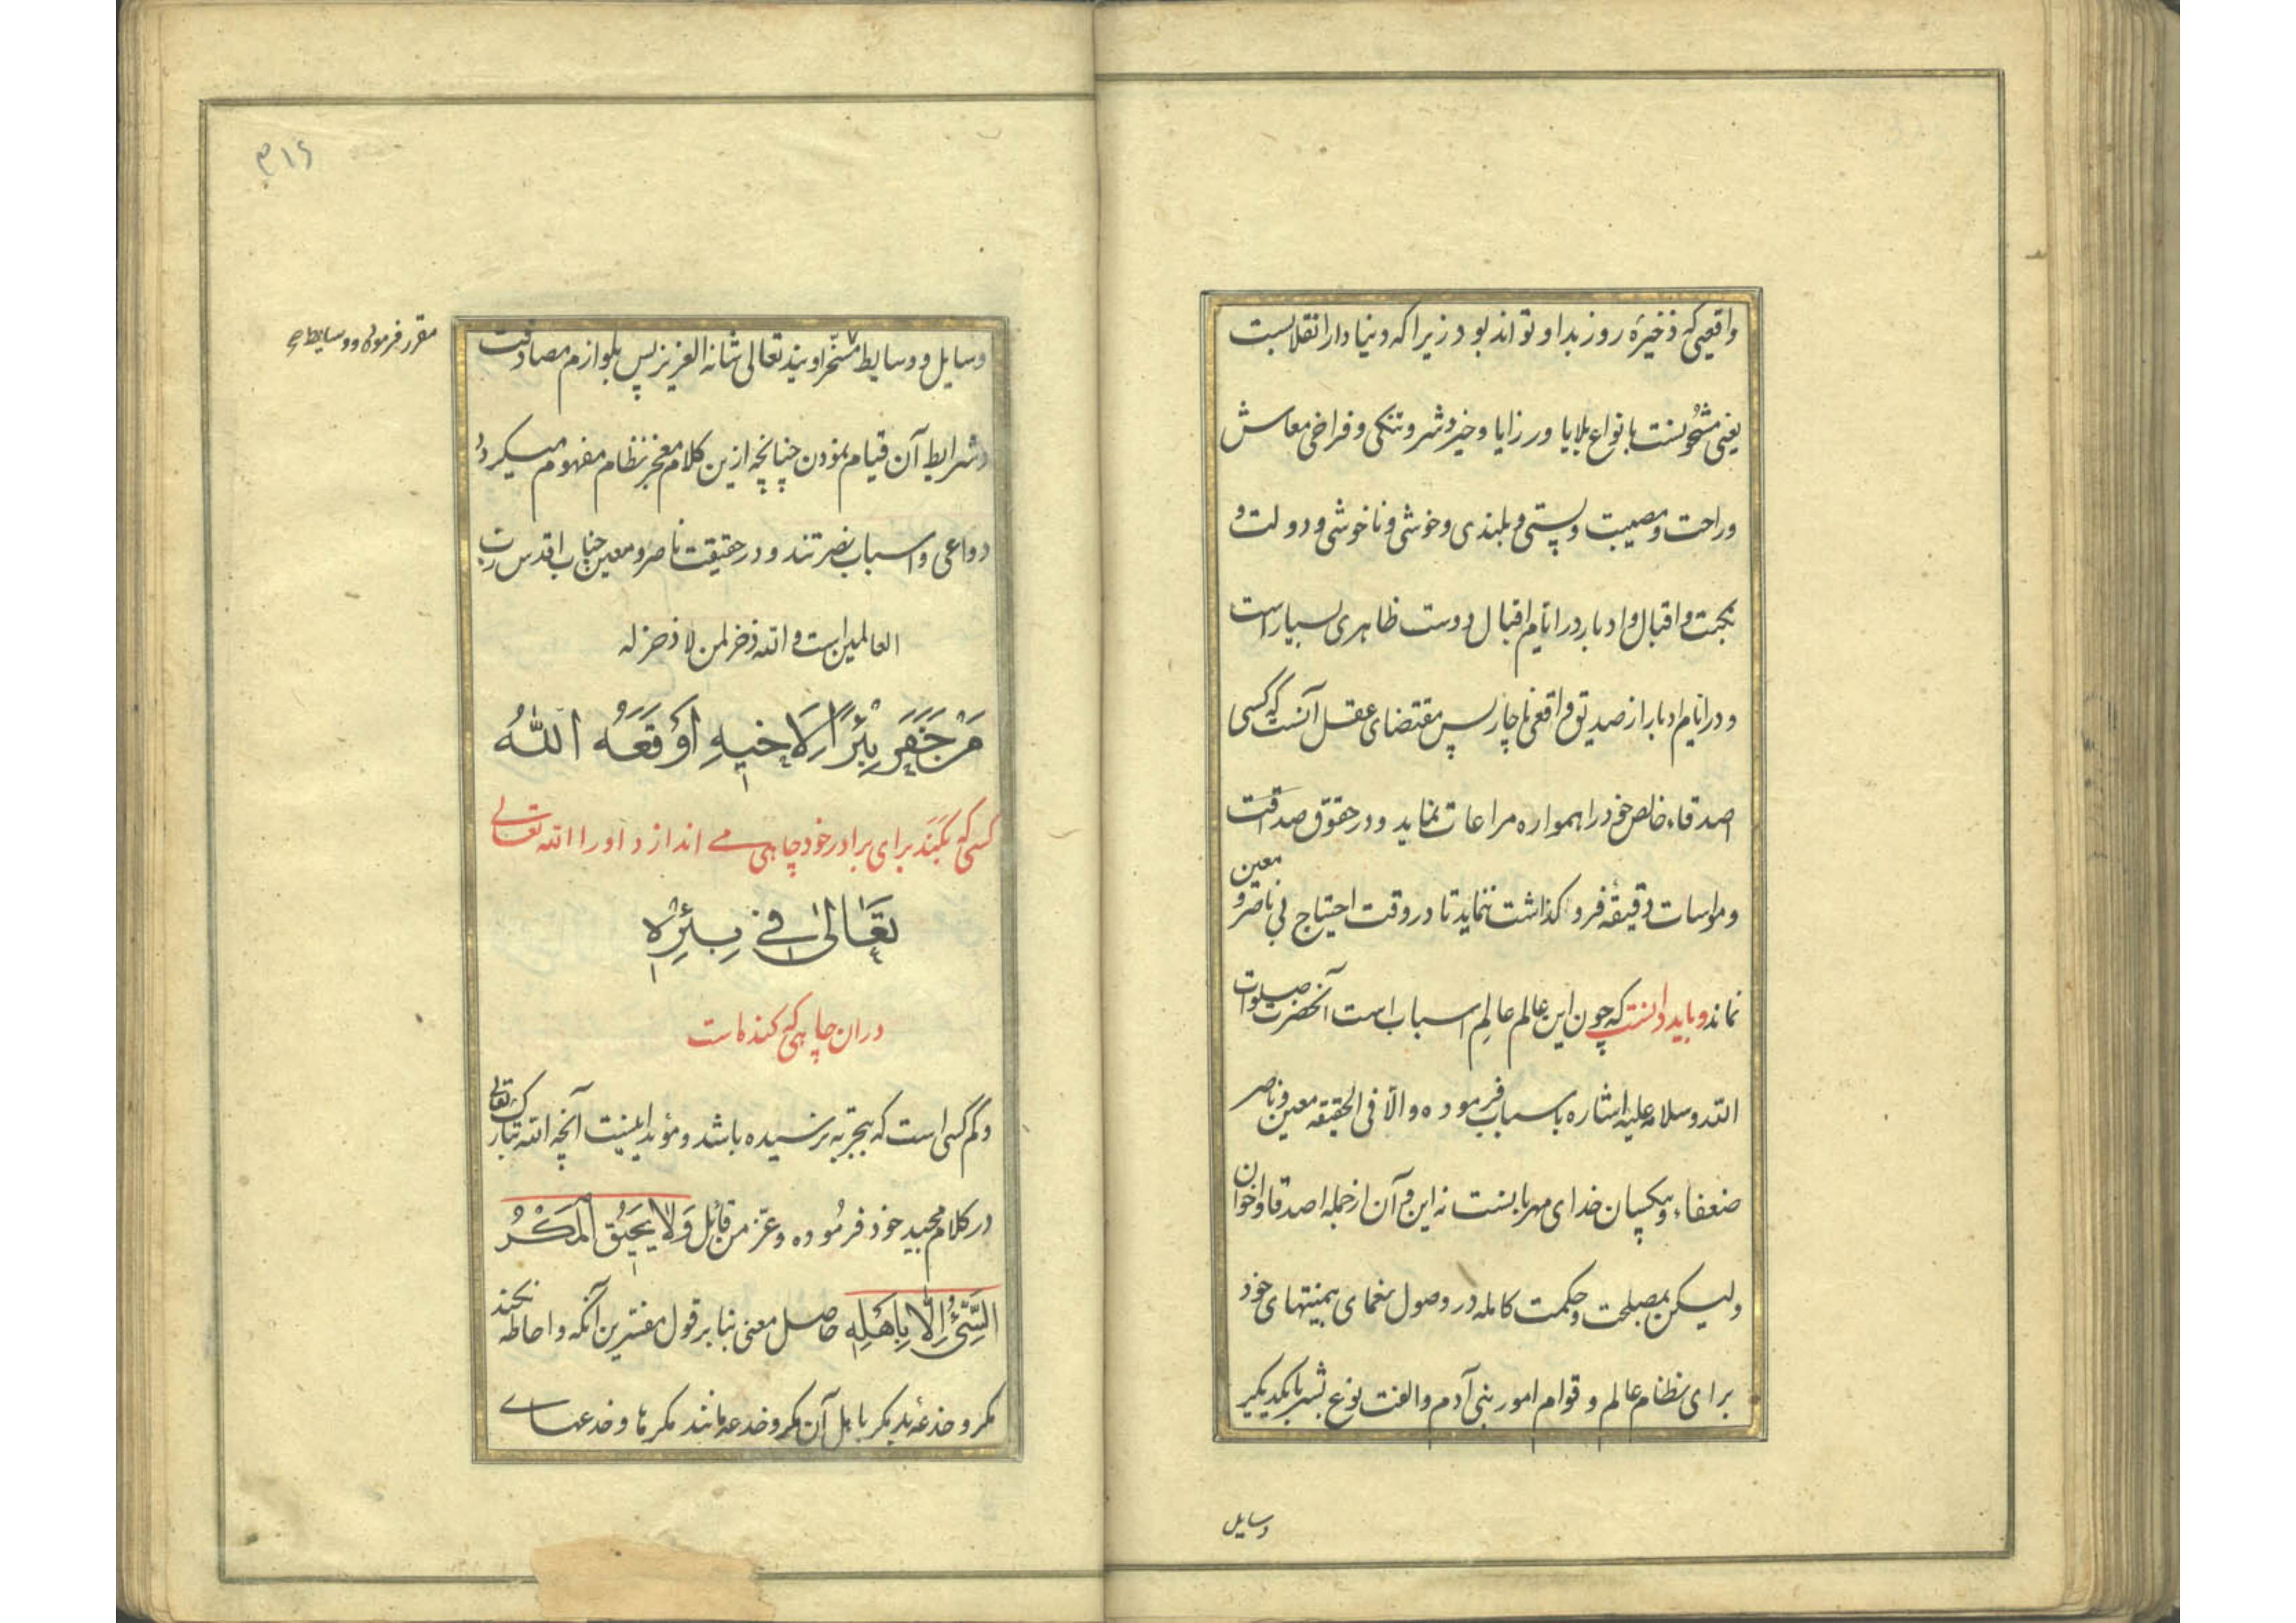 واقعی که ذخیره روز بد او تواند بود زیرا که دنیا دار انقلابست
یعنی مشحونست بانواع بلایا و رزایا و خیر و شر و تنکی و فراخی معاش
و راحت و مصیبت و پستی و بلندی و خوشی و ناخوشی و دولت و
نکبت و اقبال و ادبار در ایام اقبال دوست ظاهری بسیار است
و در ایام ادبار از صدیق واقعی ناچار پس مقتضای عقل آنست که کسی
اصدقاء خالص خود را همواره مراعات نماید و در حقوق صداقت
و مواسات دقیقه فرو کذاشت ننماید تا در وقت احتیاج بی ناصر و معین
نماند و باید دانست که چون این عالم عالم اسباب است آنحضرت صلوات
الله و سلامه علیه اشاره باسباب فرموده و الّا فی الحقیقه معین و ناصر
ضعفاء و بیکسان خدای مهربانست نه این و آن از جمله اصدقا و اخوان
و لیکن بمصلحت و حکمت کامله در وصول نعمای بیمنتهای خود
برای نظام عالم و قوام امور بنی آدم و الفت نوع بشر بایکدیکیر
وسایل
۳۱۶
وسایل و وسایط مسخّر اویند تعالی شانه العزیز پس بلوازم مصادقت
مقرر فرموده و وسایط
و شرایط آن قیام نمودن چنانچه ازین کلام معجز نظام مفهوم میکردد
دواعی و اسباب نصرتند و در حقیقت ناصر و معین جناب اقدس رب
العالمین است و الله ذخر لمن لا ذخر له
مَنْ حَفَرَ بِئْرًا لِاَخیهِ اَوْقَعَهُ اللّٰهُ
کسی که بکَنَد برای برادر خود چاهی می اندازد او را الله تعالی
تَعَالٰی فی بِئْرِه
در ان چاهی که کنده است
و کم کسی است که بتجربه نرسیده باشد و مؤید اینست آنچه الله تبارک تعالی
در کلام مجید خود فرموده و عزّ من قائل وَلَا یَحِیقُ الْمَکْرُ
السَّیِّئُ اِلَّا بِاَهْلِهِ حاصل معنی بنا بر قول مفسرین آنکه و احاطه نکند
مکر و خدعهٔ بد مکر باهل آن مکر و خدعه مانند مکرها و خدعهای